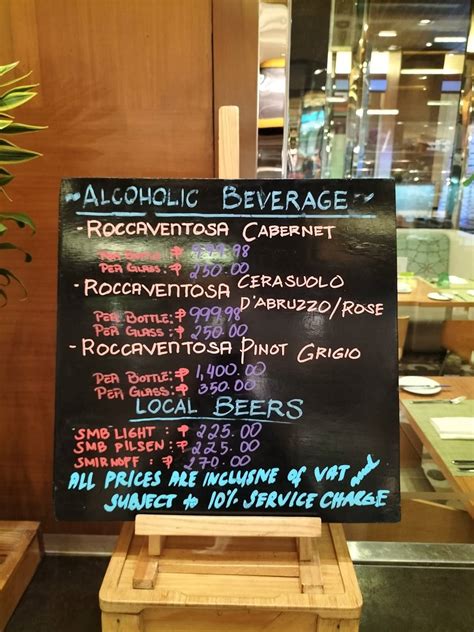 ~ALCOHOLIC BEVERAGE~
-ROCCAVENTOSA CABERNET
PER BOTTLE: ₱ 999.98
PER GLASS: ₱ 250.00
-ROCCAVENTOSA CERASUOLO
D'ABRUZZO/ROSE
PER BOTTLE: ₱ 999.98
PER GLASS: ₱ 250.00
-ROCCAVENTOSA PINOT GRIGIO
PER BOTTLE: ₱ 1,400.00
PER GLASS: ₱ 350.00
LOCAL BEERS
SMB LIGHT : ₱ 225.00
SMB PILSEN: ₱ 225.00
SMIRNOFF : ₱ 270.00
ALL PRICES ARE INCLUSIVE OF VAT
SUBJECT to 10% SERVICE CHARGE